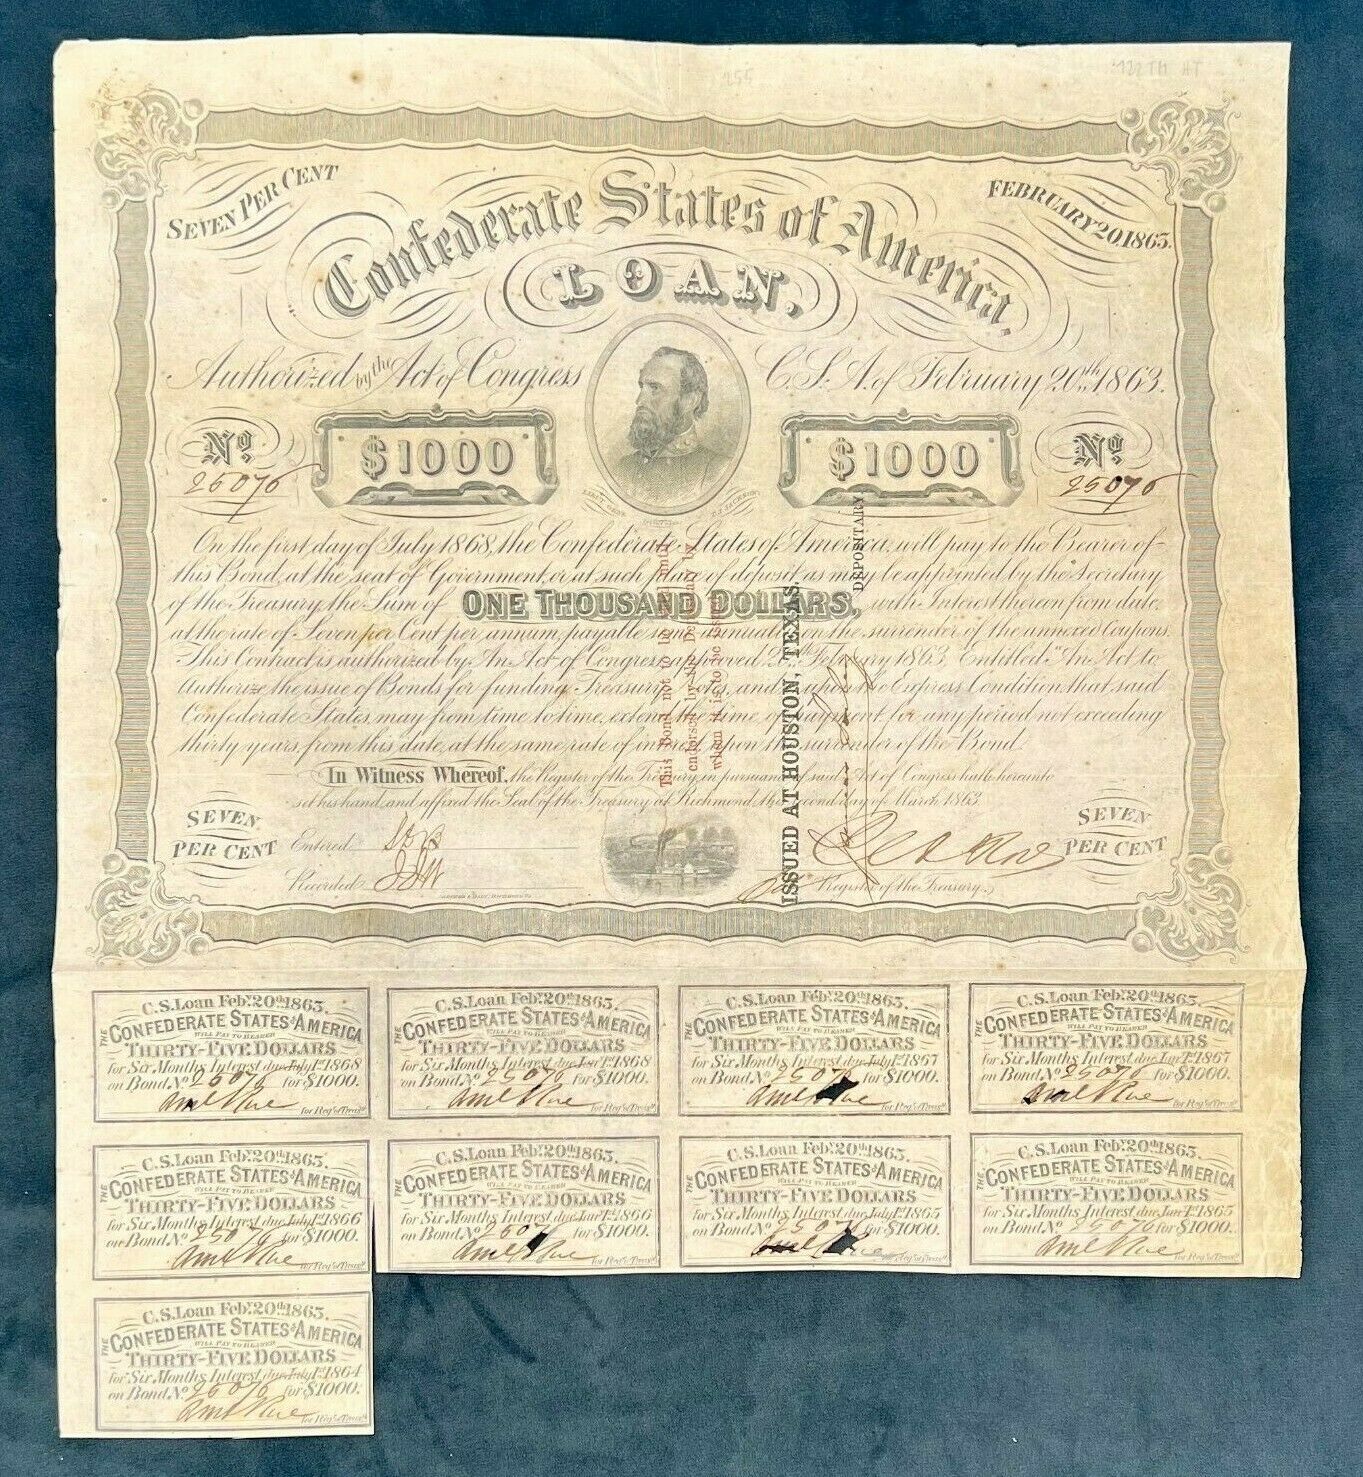 155
122TH HT
SEVEN PER CENT
FEBRUARY 20, 1863.
Confederate States of America,
LOAN,
Authorized by the Act of Congress C.S.A. of February 20th 1863.
No. $1000 $1000 No.
25076 25076
LIEUT. GEN. T.J. JACKSON
On the first day of July 1868, the Confederate States of America, will pay to the Bearer of
this Bond, at the seat of Government, or at such place of deposit as may be appointed by the Secretary
of the Treasury, the Sum of ONE THOUSAND DOLLARS, with Interest thereon from date,
at the rate of Seven per Cent per annum, payable semi annually on the surrender of the annexed Coupons.
This Contract is authorized by An Act of Congress, approved 20th February 1863, Entitled "An Act to
Authorize the issue of Bonds for funding Treasury Notes, and upon the Express Condition that said
Confederate States, may from time to time, extend the time of payment, for any period not exceeding
thirty years, from this date, at the same rate of interest upon the surrender of the Bond.
In Witness Whereof, the Register of the Treasury, in pursuance of said Act of Congress hath hereunto
set his hand, and affixed the Seal of the Treasury at Richmond, the second day of March 1863.
SEVEN PER CENT
Entered
Recorded
Register of the Treasury.
SEVEN PER CENT
This Bond not to be until
endorsed by the Depositary by
whom it is to be issued.
ISSUED AT HOUSTON, TEXAS,
DEPOSITARY
C.S. Loan Feby. 20th 1863.
THE CONFEDERATE STATES of AMERICA
WILL PAY TO BEARER
THIRTY-FIVE DOLLARS
for Six Months Interest due July 1st 1868
on Bond No. 25076 for $1000.
for Regr. of Treasy.
C.S. Loan Feby. 20th 1863.
THE CONFEDERATE STATES of AMERICA
WILL PAY TO BEARER
THIRTY-FIVE DOLLARS
for Six Months Interest due Jany 1st 1868
on Bond No. 25076 for $1000.
for Regr. of Treasy.
C.S. Loan Feby. 20th 1863.
THE CONFEDERATE STATES of AMERICA
WILL PAY TO BEARER
THIRTY-FIVE DOLLARS
for Six Months Interest due July 1st 1867
on Bond No. 25076 for $1000.
for Regr. of Treasy.
C.S. Loan Feby. 20th 1863.
THE CONFEDERATE STATES of AMERICA
WILL PAY TO BEARER
THIRTY-FIVE DOLLARS
for Six Months Interest due Jany 1st 1867
on Bond No. 25076 for $1000.
for Regr. of Treasy.
C.S. Loan Feby. 20th 1863.
THE CONFEDERATE STATES of AMERICA
WILL PAY TO BEARER
THIRTY-FIVE DOLLARS
for Six Months Interest due July 1st 1866
on Bond No. 25076 for $1000.
for Regr. of Treasy.
C.S. Loan Feby. 20th 1863.
THE CONFEDERATE STATES of AMERICA
WILL PAY TO BEARER
THIRTY-FIVE DOLLARS
for Six Months Interest due Jany 1st 1866
on Bond No. 25076 for $1000.
for Regr. of Treasy.
C.S. Loan Feby. 20th 1863.
THE CONFEDERATE STATES of AMERICA
WILL PAY TO BEARER
THIRTY-FIVE DOLLARS
for Six Months Interest due July 1st 1865
on Bond No. 25076 for $1000.
for Regr. of Treasy.
C.S. Loan Feby. 20th 1863.
THE CONFEDERATE STATES of AMERICA
WILL PAY TO BEARER
THIRTY-FIVE DOLLARS
for Six Months Interest due Jany 1st 1865
on Bond No. 25076 for $1000.
for Regr. of Treasy.
C.S. Loan Feby. 20th 1863.
THE CONFEDERATE STATES of AMERICA
WILL PAY TO BEARER
THIRTY-FIVE DOLLARS
for Six Months Interest due July 1st 1864
on Bond No. 25076 for $1000.
for Regr. of Treasy.